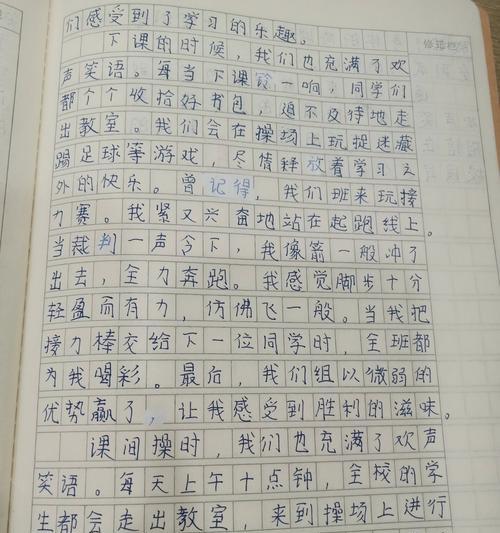 们感受到了学习的乐趣。
下课的时候，我们也充满了欢
声笑语。每当下课铃一响，同学们
都个个收拾好书包，迫不及待地走
出教室。我们会在操场上玩捉迷藏
踢足球等游戏，尽情释放着学习之
外的快乐。曾记得，我们班来玩接
力赛。我紧又兴奋地站在起跑线上。
当裁判一声令下，我像箭一般冲了
出去，全力奔跑。我感觉脚步十分
轻盈而有力，仿佛飞一般。当我把
接力棒交给下一位同学时，全班都
为我喝彩。最后，我们组以微弱的
优势赢了，让我感受到胜利的滋味。
课间操时，我们也充满了欢声
笑语。每天上午十点钟，全校的学
生都会走出教室，来到操场上进行